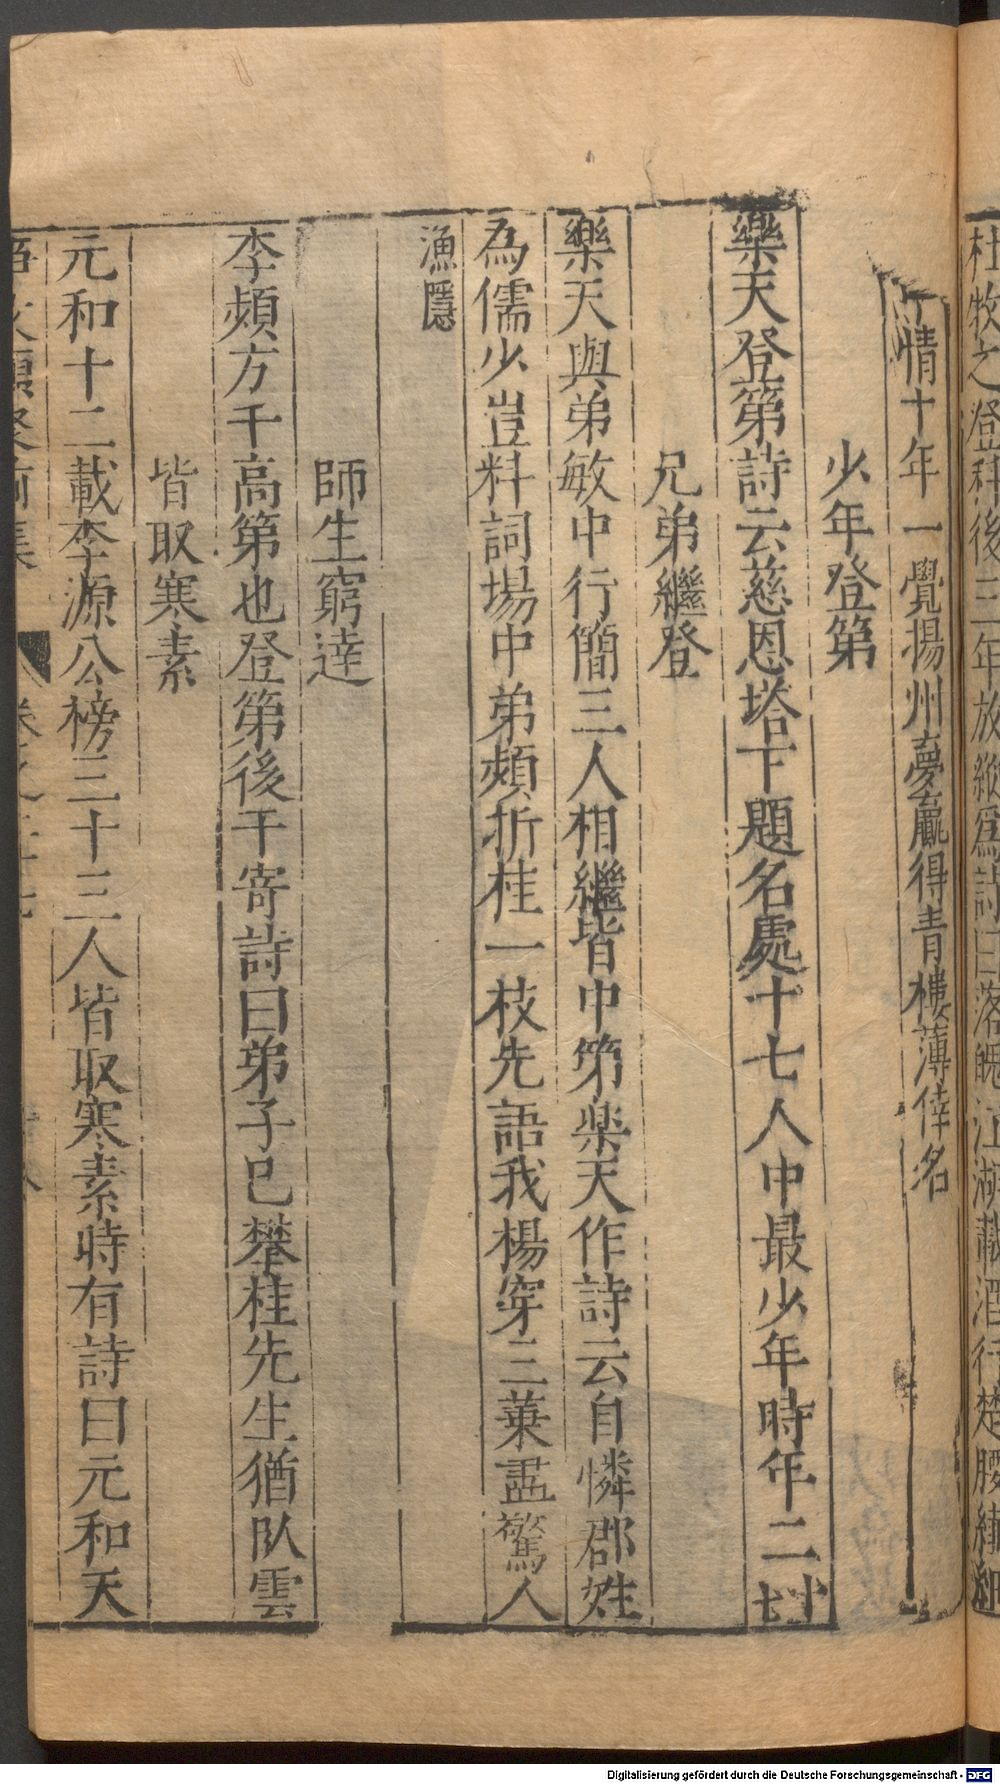 杜牧之登科後三年放縱為詩曰落魄江湖載酒行楚腰纎細
情十年一覺揚州夢贏得青樓薄倖名
少年登第
樂天登第詩云慈恩塔下題名處十七人中最少年時年二十七
兄弟繼登
樂天與弟敏中行簡三人相繼皆中第樂天作詩云自憐郡姓
為儒少豈料詞場中弟頻折桂一枝先語我楊穿三葉盡驚人
漁隱
師生窮達
李頻方干高第也登第後干寄詩曰弟子已攀桂先生猶臥雲
皆取寒素
元和十二載李源公榜三十三人皆取寒素時有詩曰元和天
Digitalisierung gefördert durch die Deutsche Forschungsgemeinschaft - DFG